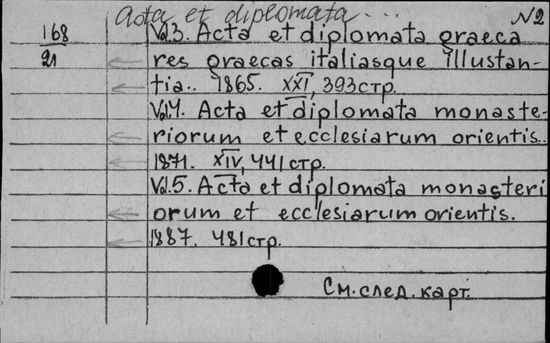 Acta et diplomata... N2
168
21
Vol.3. Acta et diplomata graeca
res graecas italiasque illustan-
tia.. 1865. XXI, 393стр.
Vol.4. Acta et diplomata monaste-
riorum et ecclesiarum orientis..
1871. XIV, 441стр.
Vol.5. Acta et diplomata monasteri
orum et ecclesiarum orientis.
1887. 481стр.
См.след.карт.